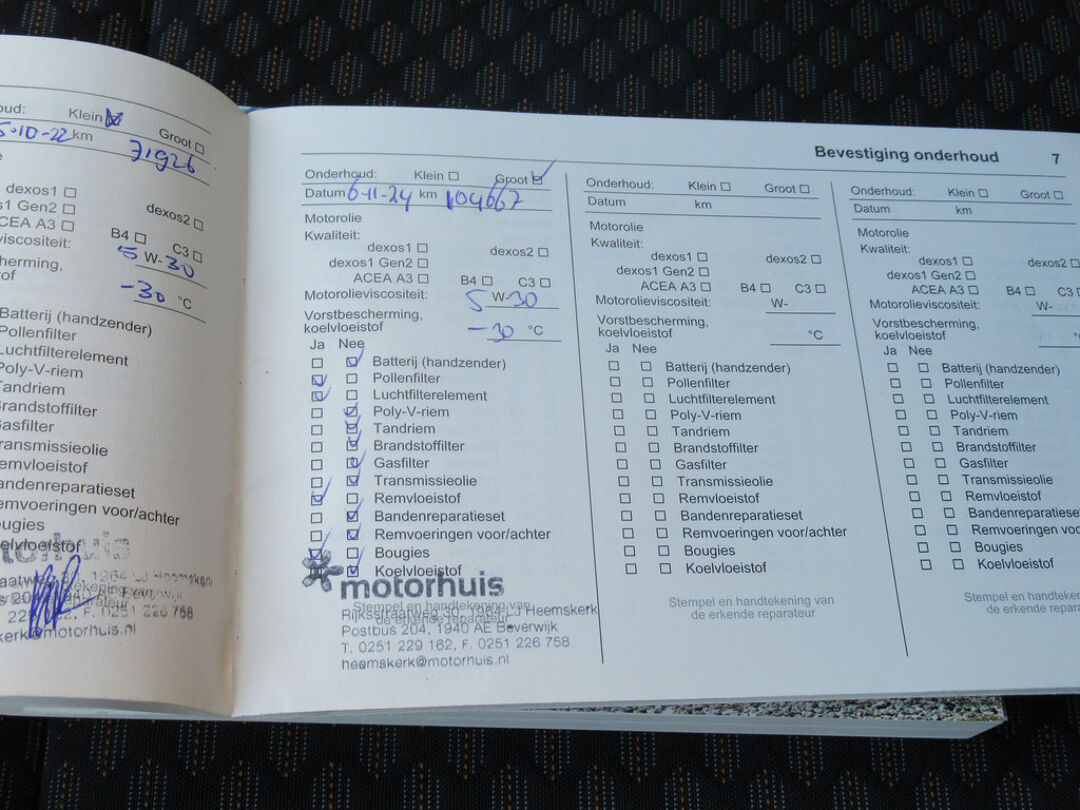 oud: Klein
Groot
5-10-22 km 71926
dexos1
dexos2
s1 Gen2
CEA A3 B4 C3
viscositeit: 5 W-30
cherming,
tof -30 °C
Batterij (handzender)
Pollenfilter
Luchtfilterelement
Poly-V-riem
Tandriem
Brandstoffilter
asfilter
ransmissieolie
emvloeistof
andenreparatieset
emvoeringen voor/achter
ougies
elvloeistof
1964 Heemskerk
F. 0251 226 758
kerk@motorhuis.nl
Bevestiging onderhoud 7
Onderhoud: Klein Groot
Datum 6-11-24 km 104667
Motorolie
Kwaliteit:
dexos1 dexos2
dexos1 Gen2
ACEA A3 B4 C3
Motorolieviscositeit: 5 W-30
Vorstbescherming,
koelvloeistof -30 °C
Ja Nee
Batterij (handzender)
Pollenfilter
Luchtfilterelement
Poly-V-riem
Tandriem
Brandstoffilter
Gasfilter
Transmissieolie
Remvloeistof
Bandenreparatieset
Remvoeringen voor/achter
Bougies
Koelvloeistof
motorhuis
Stempel en handtekening van
de erkende reparateur
Rijksstraatweg 30, 1964 LJ Heemskerk
Postbus 204, 1940 AE Beverwijk
T. 0251 229 162, F. 0251 226 758
heemskerk@motorhuis.nl
Onderhoud: Klein Groot
Datum km
Motorolie
Kwaliteit:
dexos1 dexos2
dexos1 Gen2
ACEA A3 B4 C3
Motorolieviscositeit: W-
Vorstbescherming,
koelvloeistof °C
Ja Nee
Batterij (handzender)
Pollenfilter
Luchtfilterelement
Poly-V-riem
Tandriem
Brandstoffilter
Gasfilter
Transmissieolie
Remvloeistof
Bandenreparatieset
Remvoeringen voor/achter
Bougies
Koelvloeistof
Stempel en handtekening van
de erkende reparateur
Onderhoud: Klein Groot
Datum km
Motorolie
Kwaliteit:
dexos1 dexos2
dexos1 Gen2
ACEA A3 B4 C3
Motorolieviscositeit: W-
Vorstbescherming,
koelvloeistof °C
Ja Nee
Batterij (handzender)
Pollenfilter
Luchtfilterelement
Poly-V-riem
Tandriem
Brandstoffilter
Gasfilter
Transmissieolie
Remvloeistof
Bandenreparatiese
Remvoeringen voor/a
Bougies
Koelvloeistof
Stempel en handteke
de erkende repara